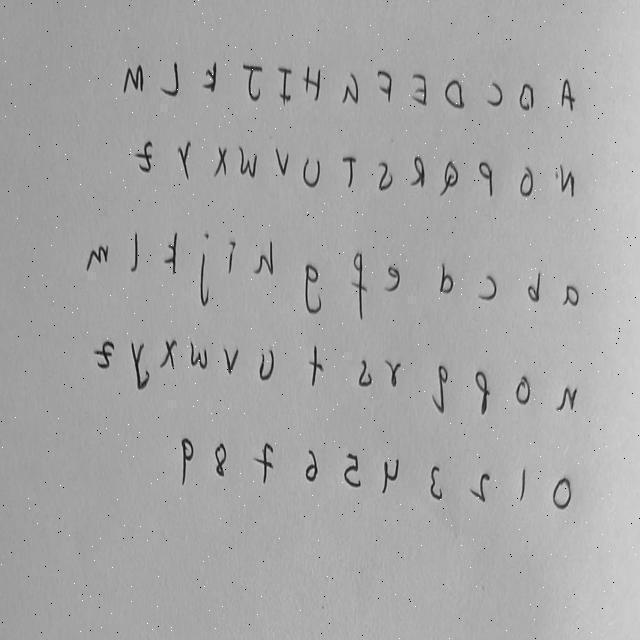 A B C D E F G H I J K L M
N O P Q R S T U V W X Y Z
a b c d e f g h i j k l m
n o p q r s t u v w x y z
0 1 2 3 4 5 6 7 8 9